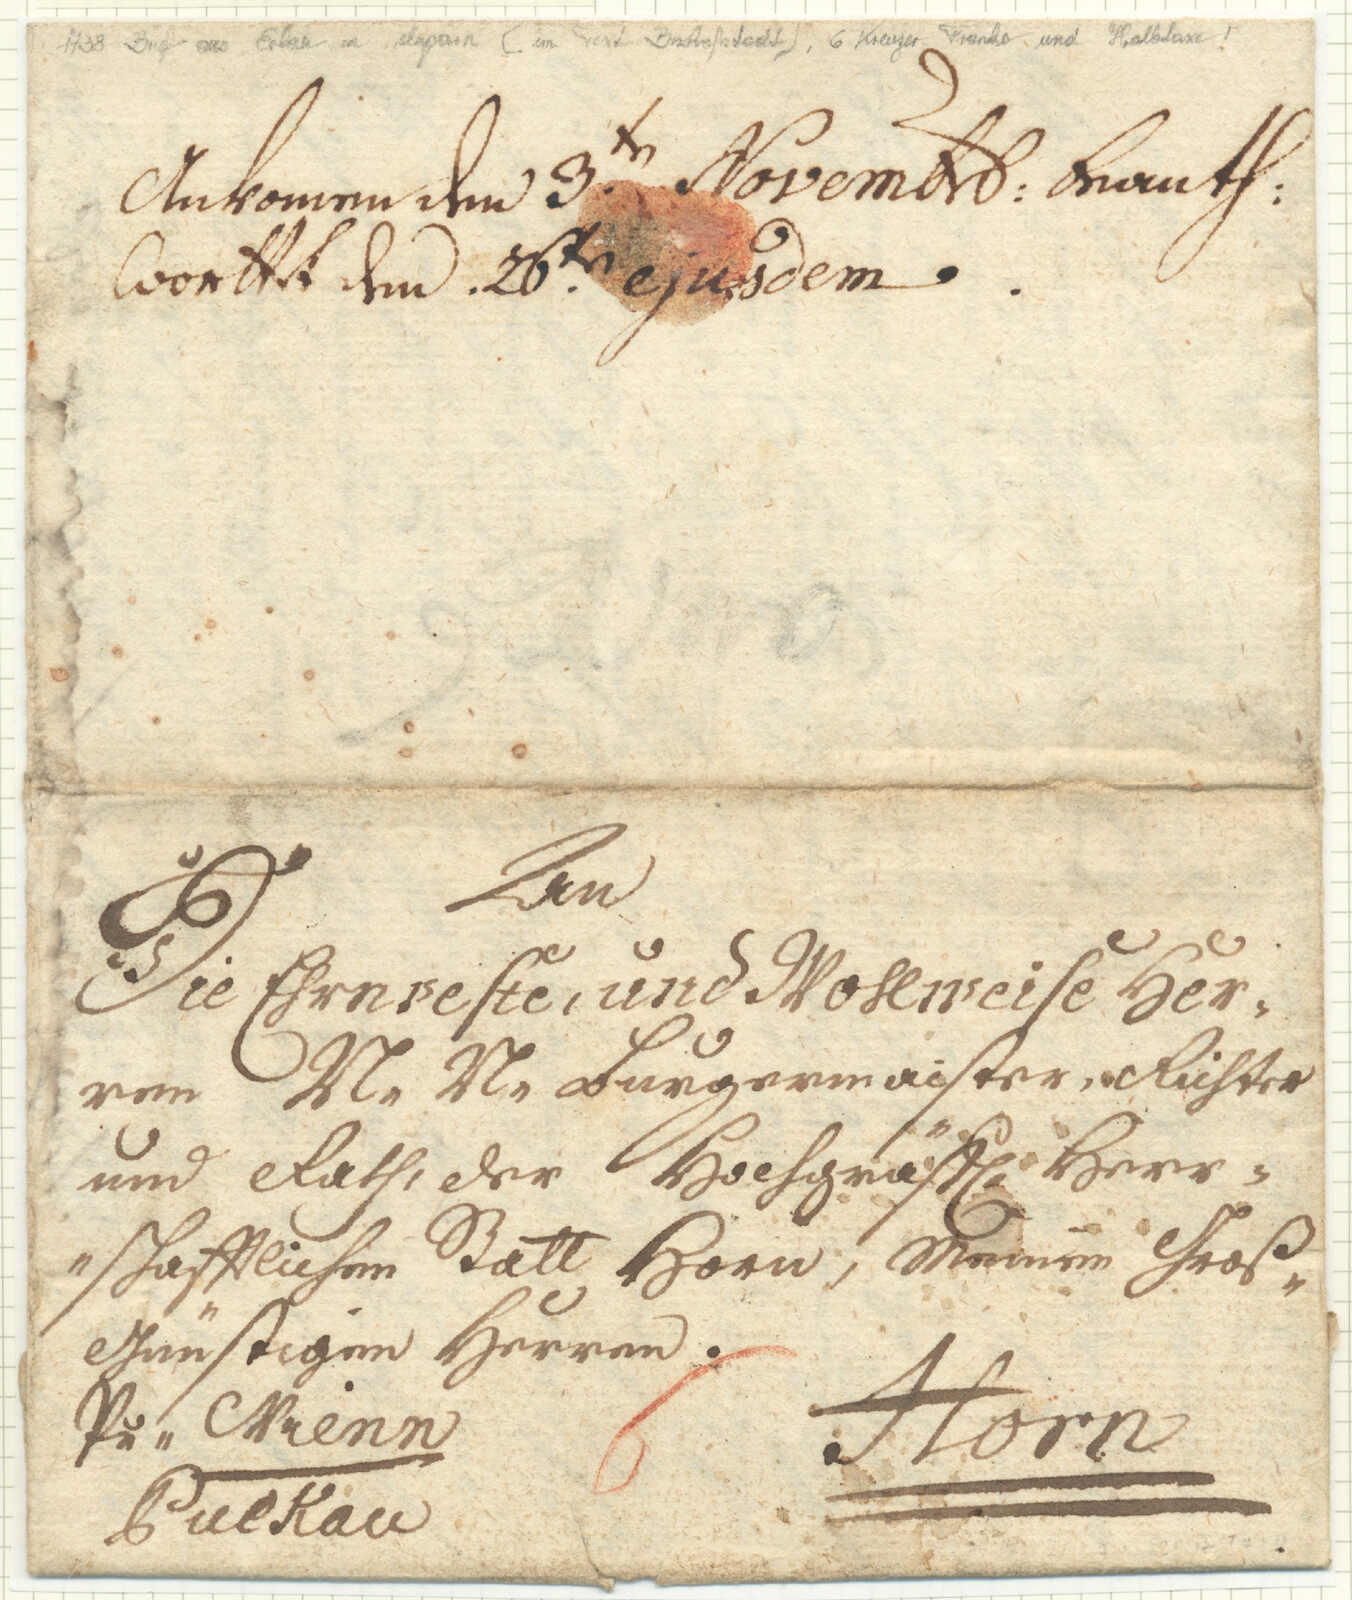 1738 Brief aus Erlau in Ungarn (im Text Bischofsstadt), 6 Kreuzer Franko und Halbtaxe!
Ankomen den 3.ten Novembrb: beanth:
worttet den 26.ten ejusdem.
An
Die Ehrnveste, und Wohlweise Her-
ren N. N. Burgermaister, Richter
und Rath, der Hochgräffl. Herr-
schafftlichen Statt Horn, Meinen Groß-
Günstigen Herren.
6
Pr. Wienn
Pulkau
Horn